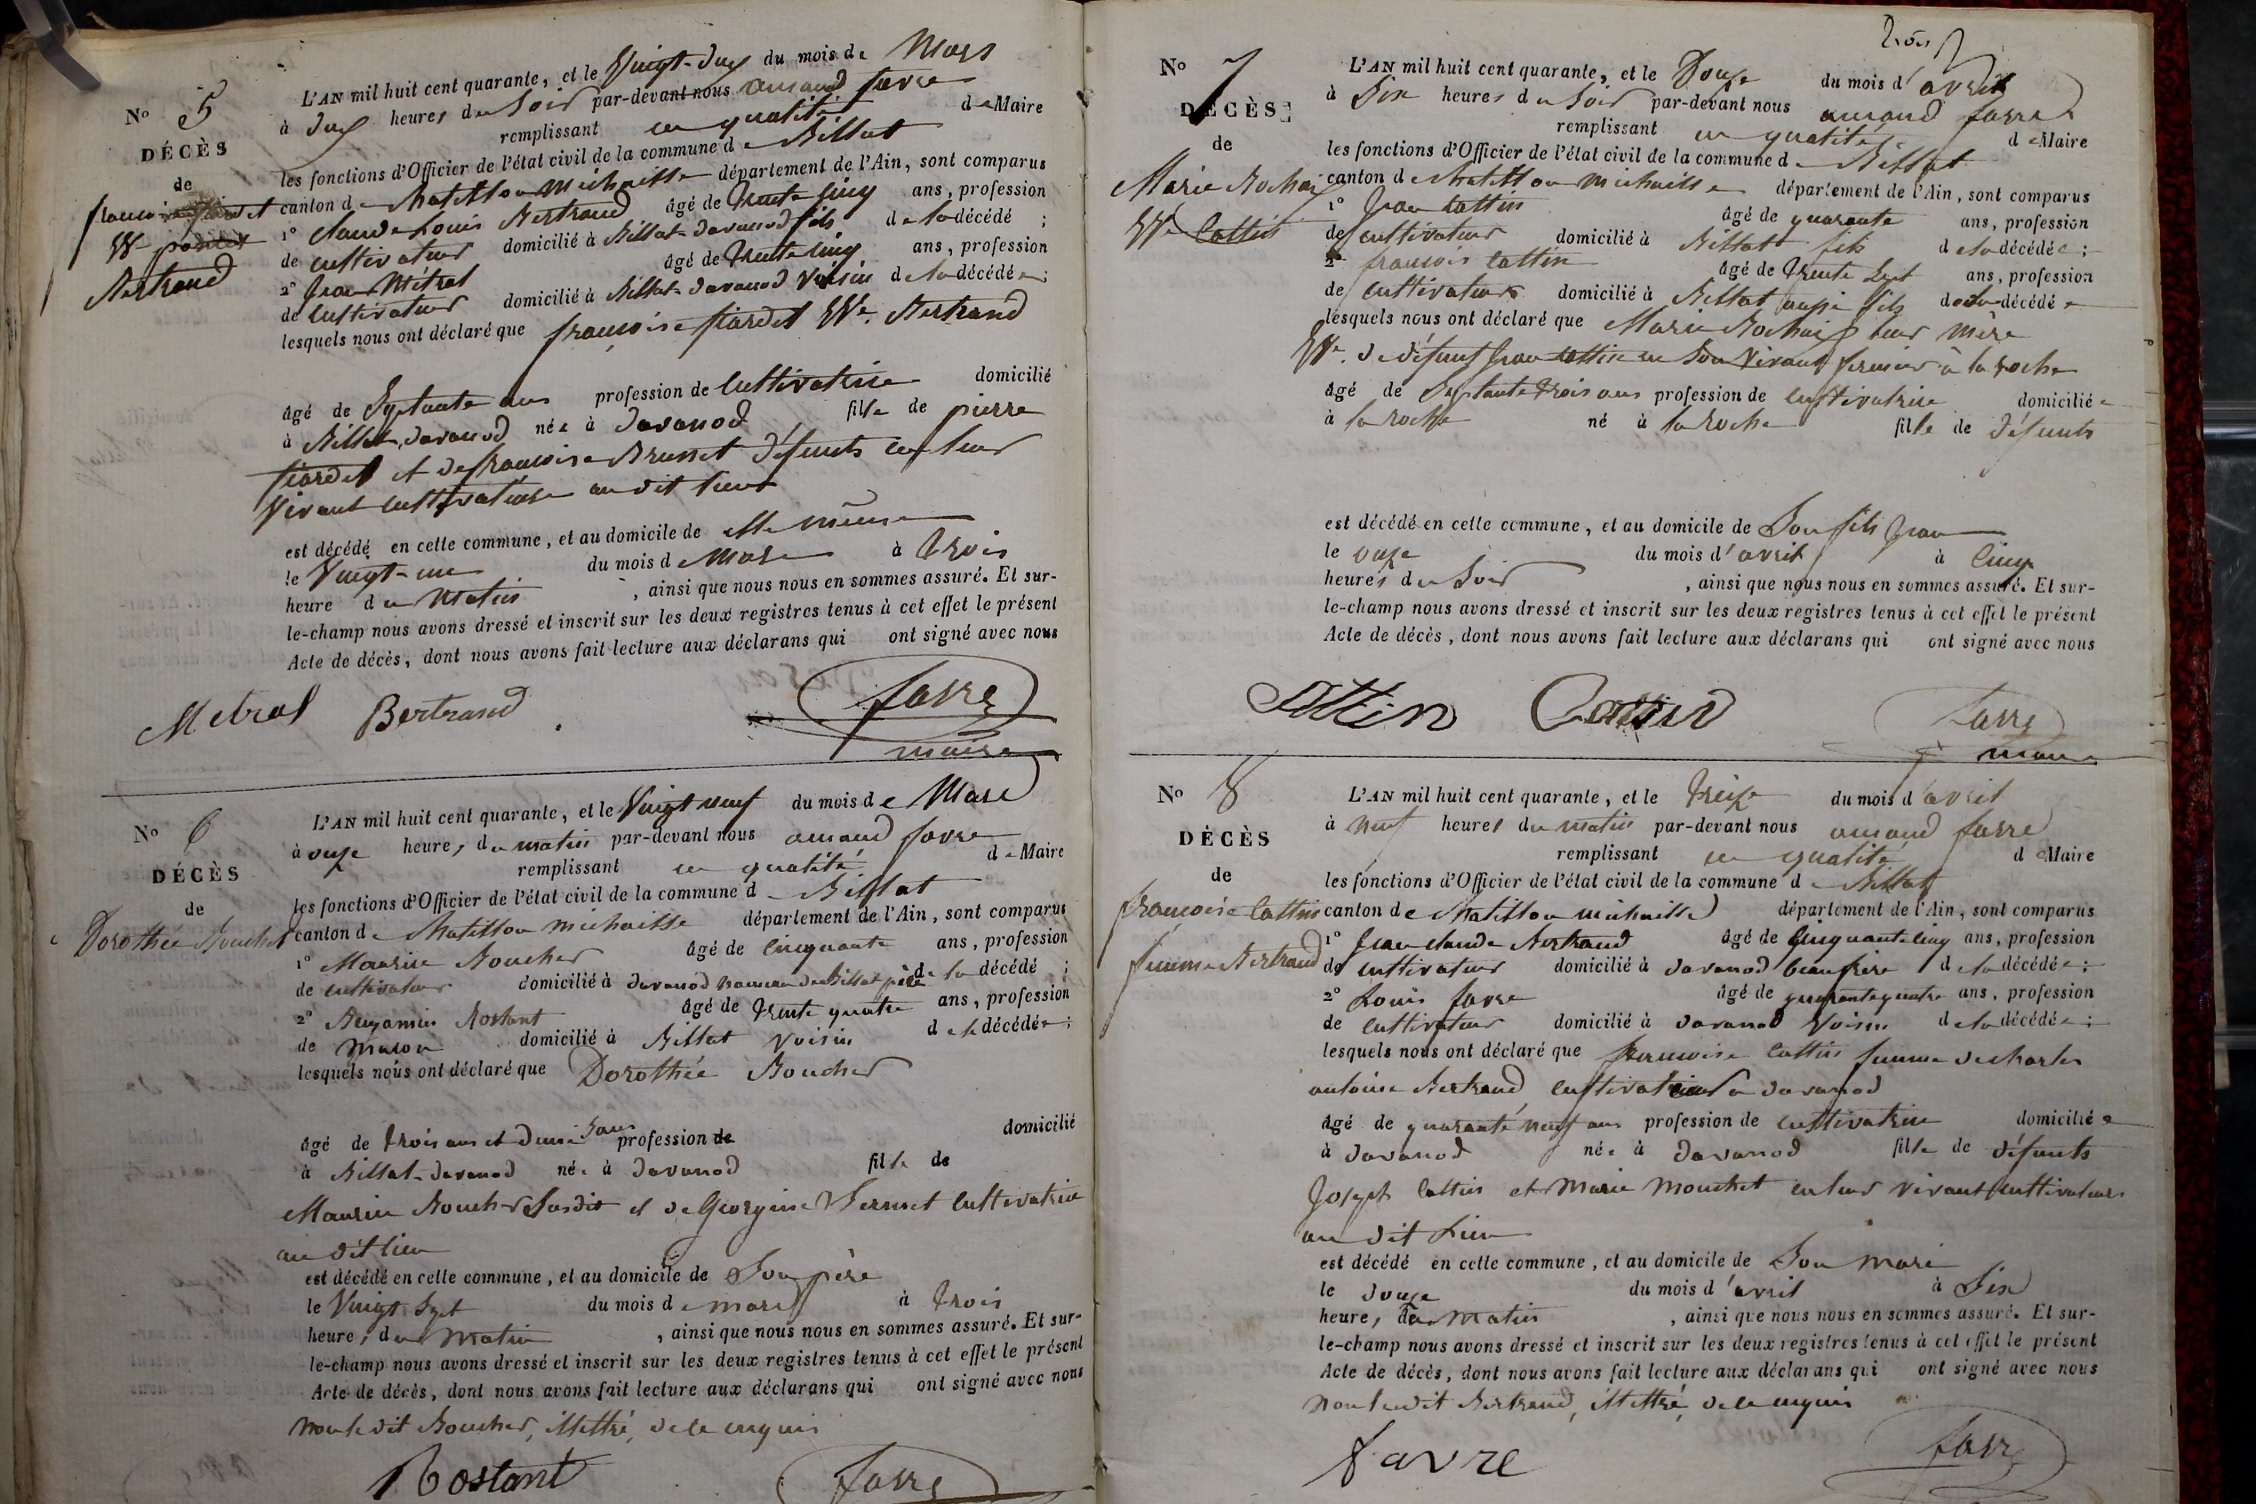 No 5
DÉCÈS
de
françoise fiardet
Ve
Bertrand
L'AN mil huit cent quarante, et le Vingt-dux du mois de Mars
à dux heures du Soir par-devant nous amand favre
remplissant en qualité de Maire
les fonctions d'Officier de l'état civil de la commune de Billiat
canton de Chatillon michaille département de l'Ain, sont comparus
1° Claude Louis Bertrand âgé de Trente cinq ans, profession
de cultivateur domicilié à Billiat-davanod fils de la décédé ;
2° Jean Métral âgé de Trente cinq ans, profession
de cultivateur domicilié à Billiat-davanod Voisin de la décédée ;
lesquels nous ont déclaré que françoise fiardet Ve. Bertrand
âgé de Septante ans profession de cultivatrice domicilié
à Billiat, davanod née à davanod fille de pierre
fiardet et de françoise Brunet défunts en leur
Vivant cultivateurs au dit lieu
est décédé en cette commune, et au domicile de elle même
le Vingt-un du mois de Mars à trois
heure du Matin , ainsi que nous nous en sommes assuré. Et sur-
le-champ nous avons dressé et inscrit sur les deux registres tenus à cet effet le présent
Acte de décès, dont nous avons fait lecture aux déclarans qui ont signé avec nous
Metral Bertrand favre
maire
No 6
DÉCÈS
de
Dorothée Boucher
L'AN mil huit cent quarante, et le Vingt neuf du mois de Mars
à onze heures du matin par-devant nous amand favre
remplissant en qualité de Maire
les fonctions d'Officier de l'état civil de la commune de Billiat
canton de Chatillon michaille département de l'Ain, sont comparus
1° Maurice Boucher âgé de cinquante ans, profession
de cultivateur domicilié à davanod hameau de Billiat père de la décédé ;
2° Benjamin Rostant âgé de Trente quatre ans, profession
de maçon domicilié à Billiat voisin de la décédée ;
lesquels nous ont déclaré que Dorothée Boucher
âgé de trois ans et demi Sans profession de domicilié
à Billiat-davanod née à davanod fille de
Maurice Boucher Susdit et de Georgine Pernet cultivatrice
au dit lieu
est décédé en cette commune, et au domicile de Son père
le Vingt Sept du mois de mars à trois
heures du Matin , ainsi que nous nous en sommes assuré. Et sur-
le-champ nous avons dressé et inscrit sur les deux registres tenus à cet effet le présent
Acte de décès, dont nous avons fait lecture aux déclarans qui ont signé avec nous
non le dit Boucher, illettré, de ce enquis
Rostant favre
trois
No 7
DÉCÈS
de
Marie Rochaix
Ve Cottin
L'AN mil huit cent quarante, et le Douze du mois d'avril
à Six heures du Soir par-devant nous amand favre
remplissant en qualité de Maire
les fonctions d'Officier de l'état civil de la commune de Billiat
canton de Chatillon michaille département de l'Ain, sont comparus
1° Jean Cottin âgé de quarante ans, profession
de cultivateur domicilié à Billiat fils de la décédée ;
2° françois Cottin âgé de trente Sept ans, profession
de cultivateur domicilié à Billiat aussi fils de la décédée
lesquels nous ont déclaré que Marie Rochaix leur mère
Ve. de défunt Jean Cottin en Son Vivant fermier à la roche
âgé de Septante trois ans profession de cultivatrice domiciliée
à la roche né à la roche fille de défunts
est décédé en cette commune, et au domicile de Son fils Jean
le onze du mois d'avril à cinq
heures du Soir , ainsi que nous nous en sommes assuré. Et sur-
le-champ nous avons dressé et inscrit sur les deux registres tenus à cet effet le présent
Acte de décès, dont nous avons fait lecture aux déclarans qui ont signé avec nous
Cottin Cottin favre
maire
No 8
DÉCÈS
de
françoise Cottin
femme Bertrand
L'AN mil huit cent quarante, et le treize du mois d'avril
à neuf heures du matin par-devant nous amand favre
remplissant en qualité de Maire
les fonctions d'Officier de l'état civil de la commune de Billiat
canton de Chatillon michaille département de l'Ain, sont comparus
1° Jean claude Bertrand âgé de cinquante cinq ans, profession
de cultivateur domicilié à davanod beaufrère de la décédée ;
2° Louis favre âgé de quarante quatre ans, profession
de cultivateur domicilié à davanod Voisin de la décédée ;
lesquels nous ont déclaré que françoise Cottin femme de charles
antoine Bertrand, cultivateur à davanod
âgé de quarante neuf ans profession de cultivatrice domiciliée
à davanod née à davanod fille de défunts
Joseph Cottin et Marie Mouchet en leur vivant cultivateurs
au dit Lieu
est décédé en cette commune, et au domicile de Son mari
le douze du mois d'avril à Six
heures du Matin , ainsi que nous nous en sommes assuré. Et sur-
le-champ nous avons dressé et inscrit sur les deux registres tenus à cet effet le présent
Acte de décès, dont nous avons fait lecture aux déclarans qui ont signé avec nous
non le dit Bertrand, illettré, de ce enquis
favre favre